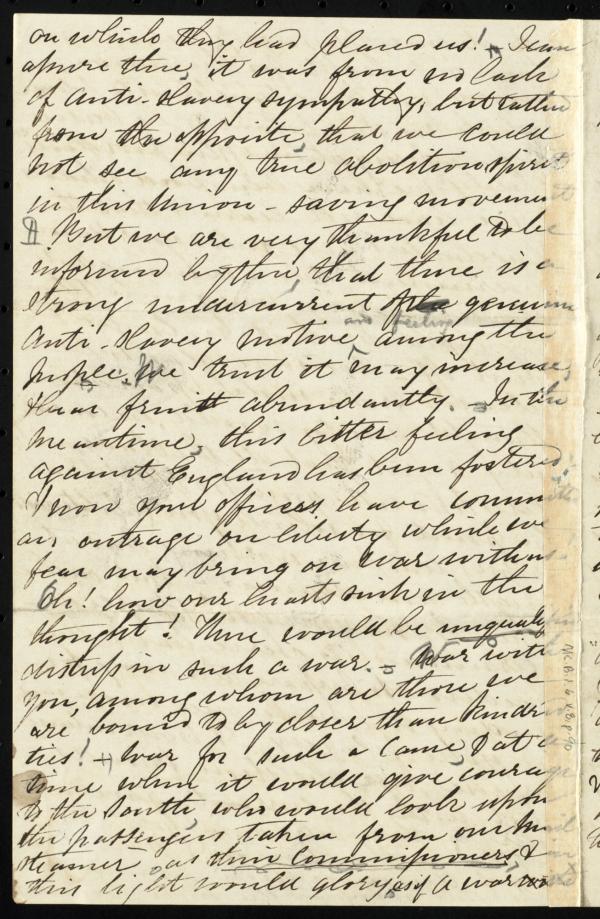 on which they had placed us! I can
assure thee, it was from no lack
of anti-slavery sympathy, but rather
from the opposite, that we could
not see any true abolition spirit
in this Union-saving movement
But we are very thankful to be
informed by thee, that there is a
strong undercurrent of genuine
and feeling
Anti-slavery motive, among the
people. We trust it may increase,
& bear fruit abundantly. In the
meantime, this bitter feeling
against England has been fostered,
& now your officers have committed
an outrage on liberty which we
fear may bring on war with us.
Oh! how our hearts sink in the
thought! There would be unequalled
distress in such a war. - War with
you, among whom are those we
are bound to by closer than kindred
ties! - War for such a cause, & at a
time when it would give courage
to the South, who would look upon
the passengers taken from our Mail
steamer as their Commissioners, &
this light would glory, as if a war
NCB 1.6 v.8 p.90